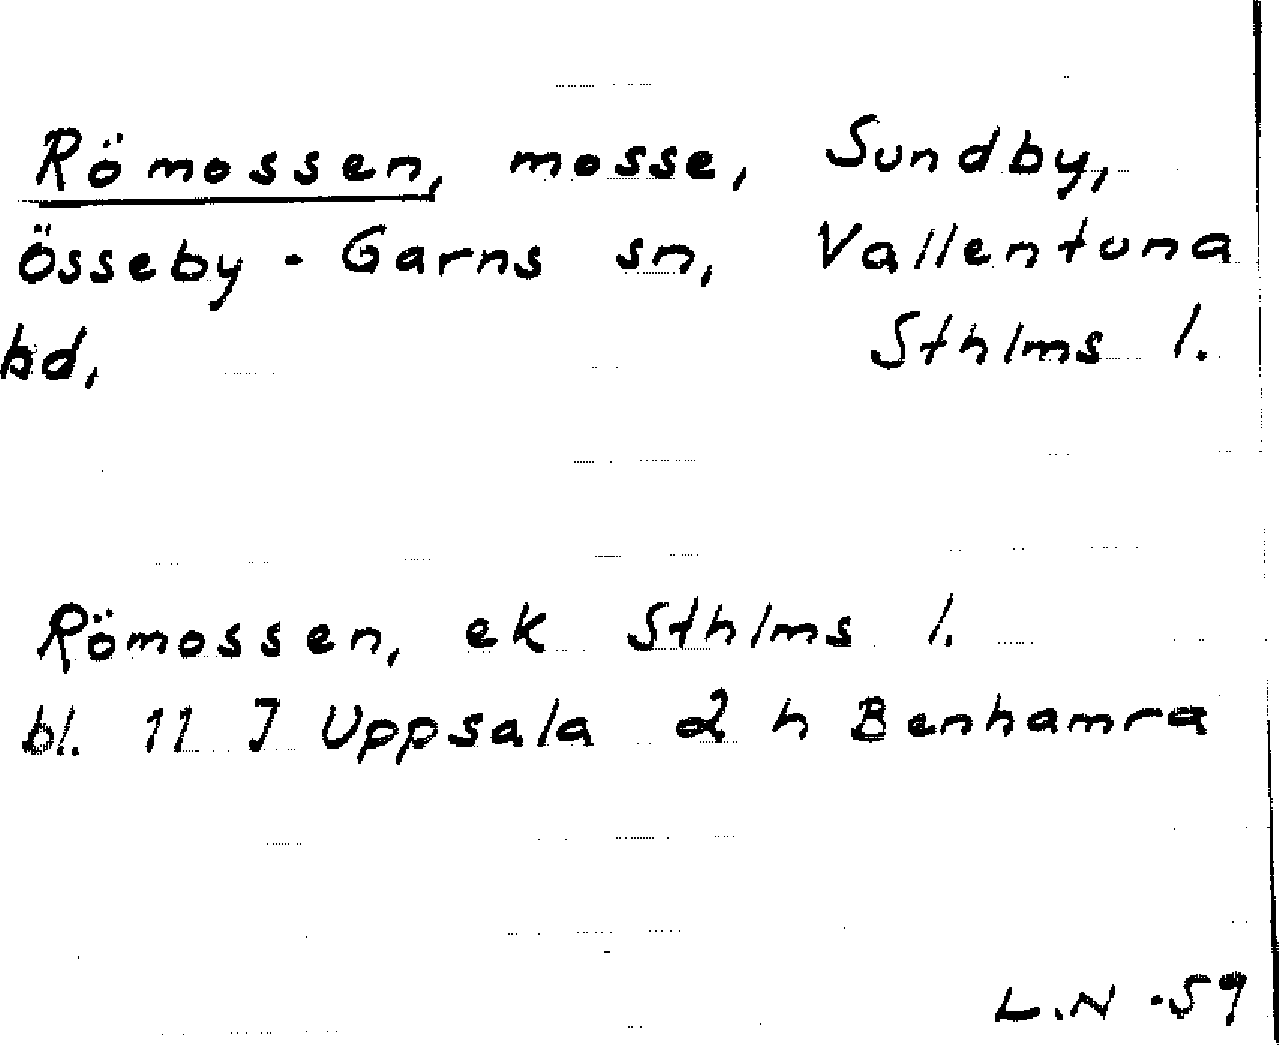 Römossen, mosse, Sundby,
Össeby - Garns sn, Vallentuna
hd, Sthlms l.
Römossen, ek Sthlms l.
bl. 11 J Uppsala 2 h Benhamra
L.N -59